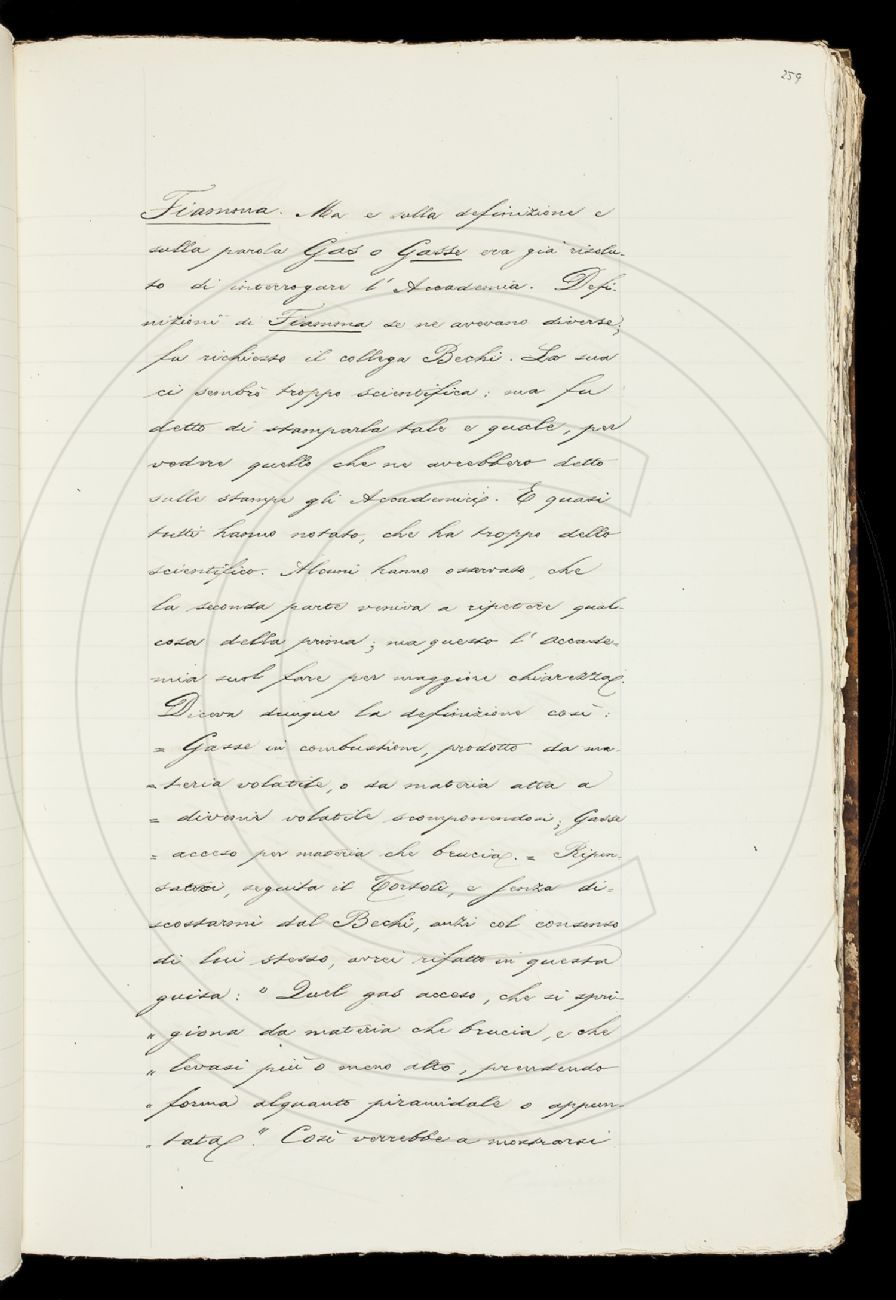 259
Fiamma. Ma e sulla definizione e
sulla parola Gas o Gasse era già risolu-
to di interrogare l'Accademia. Defi-
nizioni di Fiamma se ne avevano diverse;
fu richiesto il collega Bechi. La sua
ci sembrò troppo scientifica; ma fu
detto di stamparla tale e quale, per
vedere quello che ne avrebbero detto
sulle stampe gli Accademici. E quasi
tutti hanno notato, che ha troppo dello
scientifico. Alcuni hanno osservato, che
la seconda parte veniva a ripetere qual-
cosa della prima; ma questo l'Accade-
mia suol fare per maggiore chiarezza.
Diceva dunque la definizione così:
= Gasse in combustione, prodotto da ma-
= teria volatile, o da materia atta a
= divenir volatile scomponendosi; Gasse
= acceso per materia che brucia. = Ripen-
satoci, seguita il Tortoli, e senza di-
scostarmi dal Bechi, anzi col consenso
di lui stesso, avrei rifatto in questa
guisa: " Quel gas acceso, che si spri-
" giona da materia che brucia, e che
" levasi più o meno alto, prendendo
" forma alquanto piramidale o appun-
" tata". Così verrebbe a mostrarsi